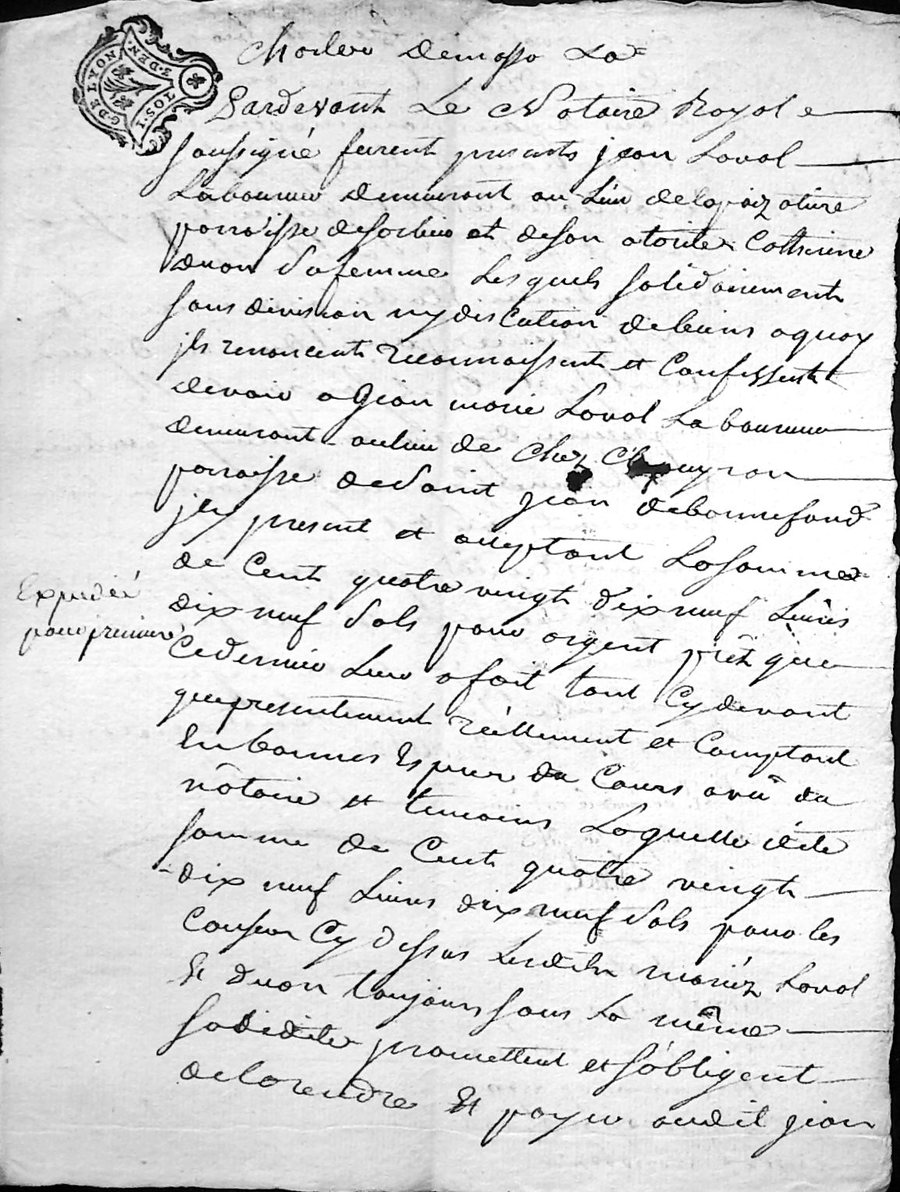 G. DE LYON
1. SOL
2. DEN.
Pardevant Le Notaire Royal
soussigné furent presents jean Laval
Laboureur demeurant au Lieu
parroisse desorbier et deson atorité Catherine
duon safemme Lesquels solidairement
sans division ny discution debiens aquoy
jls renoncent reconnoissent et Confessent
devoir a jean marie Laval Laboureur
demeurant aulieu de Chez
parroisse desaint jean debonnefond
jcy present et acceptant Lasomme
de Cent quatre vingt dixneuf Livres
dix neuf sols pour argent prêté que
Cedernier Leur afait tant Cydevant
quepresentement réellement et Comptant
En bonnes Espèces du Cours avû du
nôtaire et temoins Laquelle ditte
somme de Cent quatre vingt
dix neuf Livres dix neuf sols pour les
Causes Cy dessus Lesdits mariéz Laval
Et duon toujours sous La même
solidité promettent et sôbligent
delarendre Et payer audit jean
Expediée
pour premiere